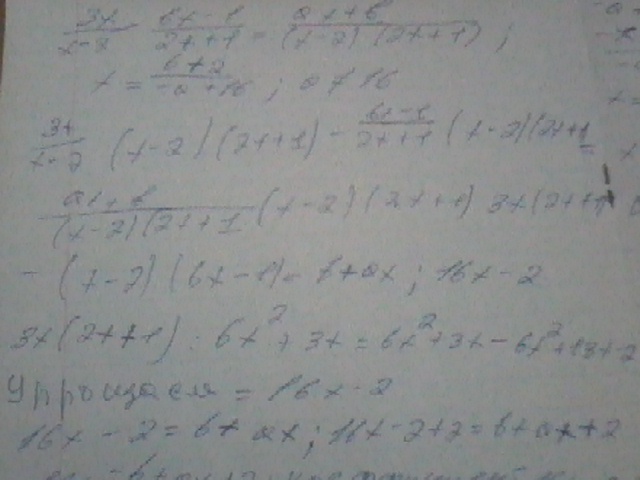 3x/x-2 6x-1/2x+1 = ax+b/(x-2)(2x+1);
x = b+2/-a+16; a≠16
3x/x-2 (x-2)(2x+1) - 6x-1/2x+1 (x-2)(2x+1 =
ax+b/(x-2)(2x+1 (x-2)(2x+1) 3x(2x+1)
- (x-2)(6x-1) = b+ax; 16x-2
3x(2x+1): 6x²+3x = 6x²+3x-6x²+13x-2
Упрощаем = 16x-2
16x-2 = b+ax; 16x-2+2 = b+ax+2